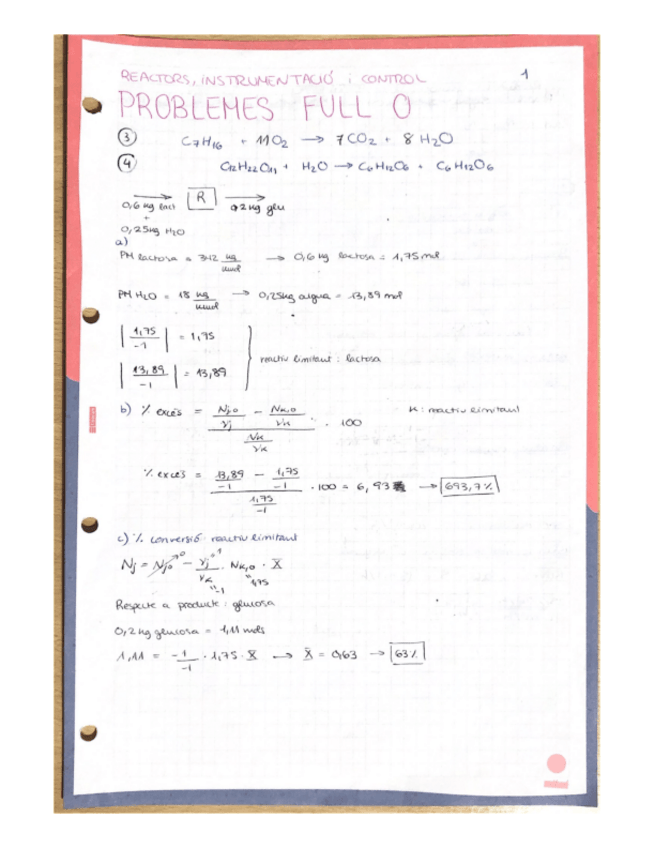 REACTORS, INSTRUMENTACIÓ i CONTROL 1
PROBLEMES FULL 0
③ C7H16 + 11O2 → 7CO2 + 8H2O
④ C12H22O11 + H2O → C6H12O6 + C6H12O6
→ R →
0,6 kg lact 0,2 kg glu
+
0,25kg H2O
a)
PM lactosa = 342 kg/kmol → 0,6 kg lactosa = 1,75 mol
PM H2O = 18 kg/kmol → 0,25kg aigua = 13,89 mol
| 1,75 / -1 | = 1,75
reactiu limitant : lactosa
| 13,89 / -1 | = 13,89
b) % excés = (Nj,0 / νj - Nk,0 / νk) / (Nk / νk) · 100 K : reactiu limitant
% excés = (13,89 / -1 - 1,75 / -1) / (1,75 / -1) · 100 = 6,93 → 693,7%
c) % conversió reactiu limitant
Nj = Nj0 →0 - νj "1 / νk "-1 · Nk,0 "1,75 · X
Respecte a producte : glucosa
0,2 kg glucosa = 1,11 mols
1,11 = -1 / -1 · 1,75 · X → X = 0,63 → 63%